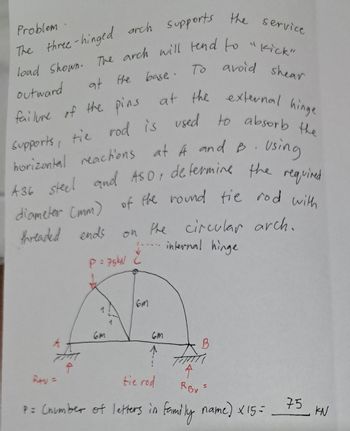 Problem.
The three-hinged arch supports the service
load shown. The arch will tend to "kick"
outward at the base. To avoid shear
failure of the pins at the external hinge
supports, tie rod is used to absorb the
horizontal reactions at A and B. Using
A36 steel and ASD, determine the required
diameter (mm) of the round tie rod with
threaded ends on the circular arch.
internal hinge
P = 75kN C
1
1
6m
6m
6m
A
B
RAV =
tie rod
RBV =
P = (number of letters in family name) x15 = 75 kN